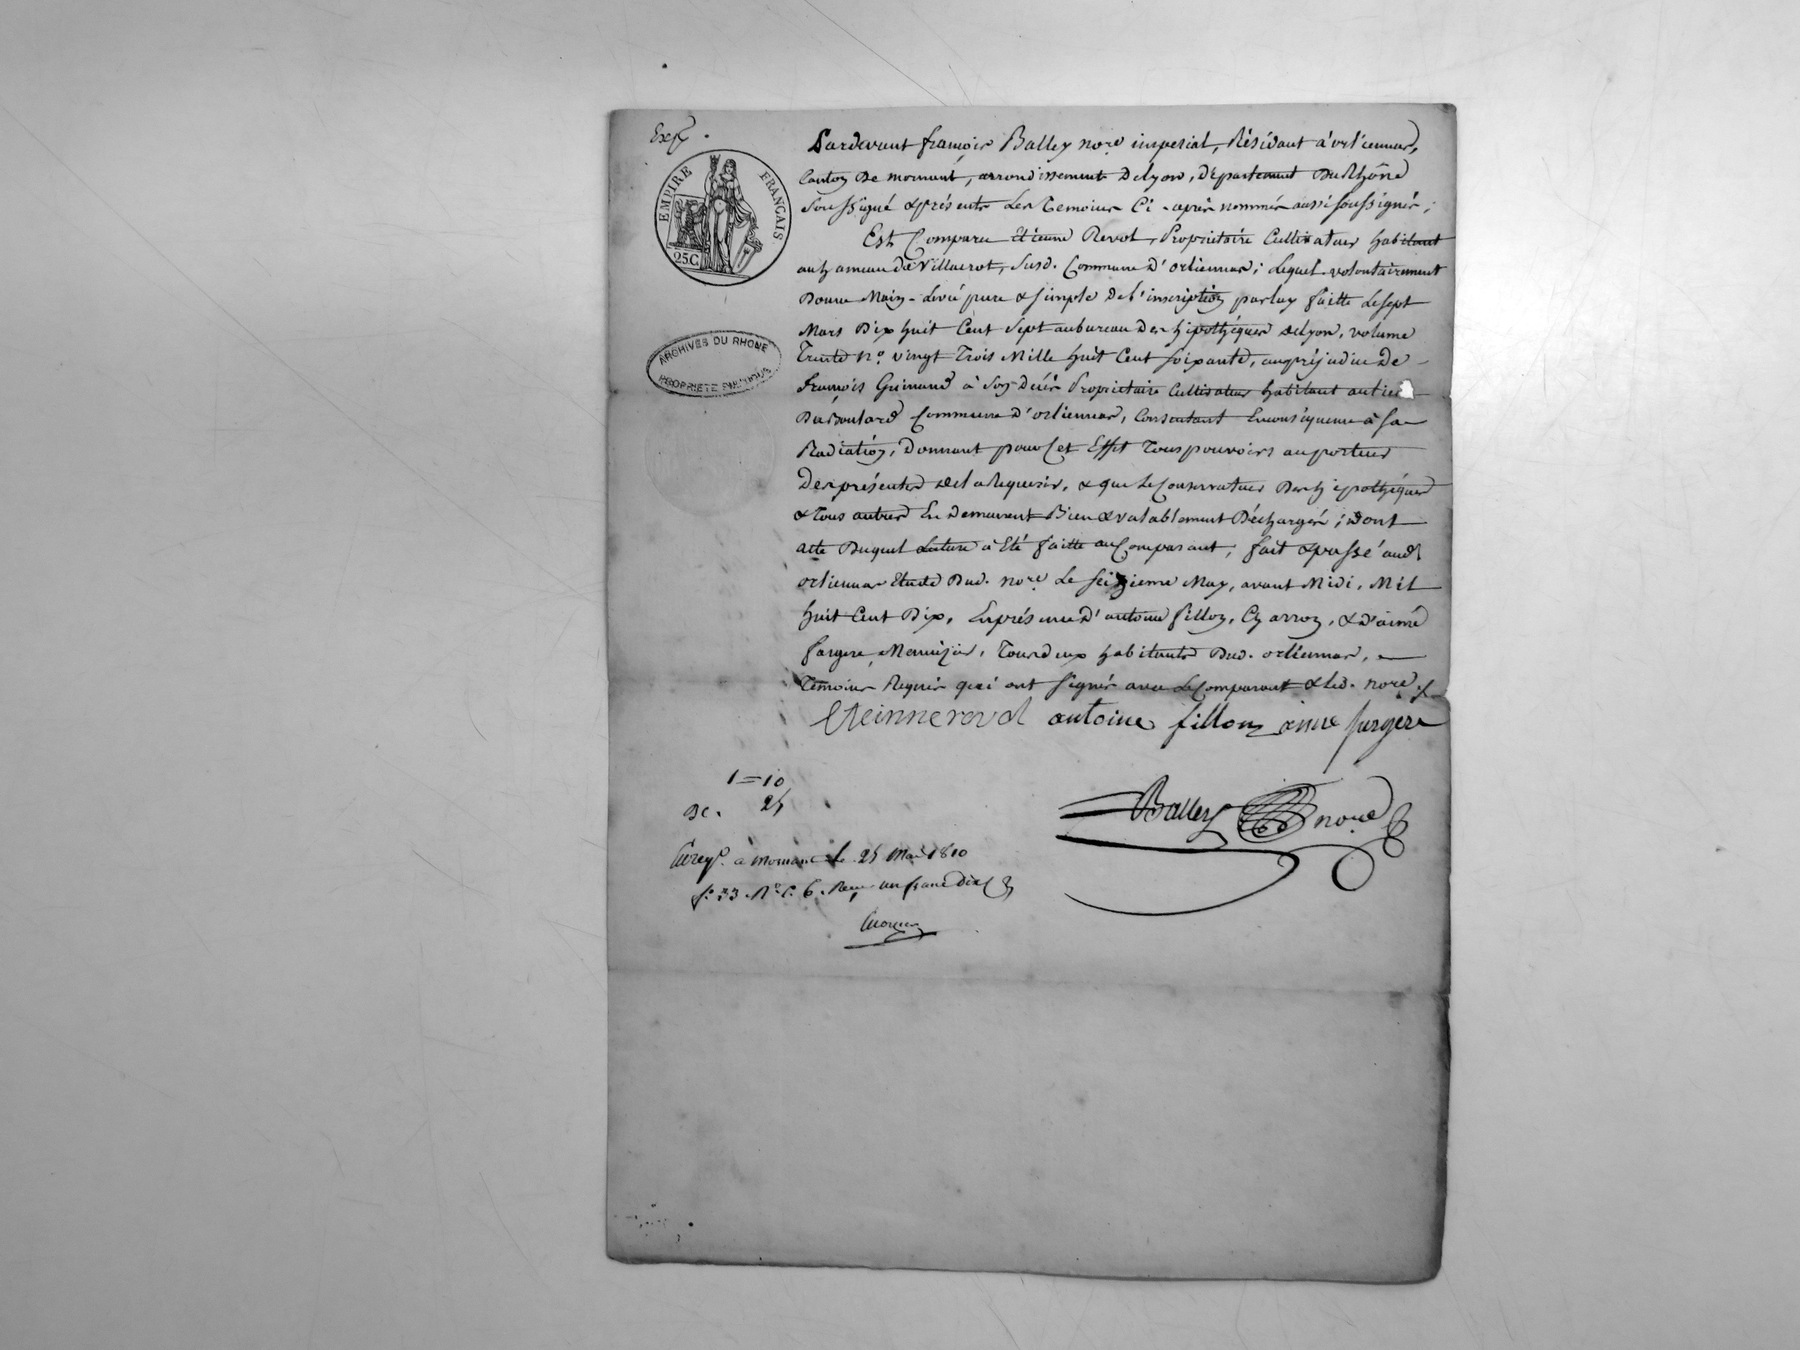 Exp.
EMPIRE FRANÇAIS
25C
ARCHIVES DU RHONE
PROPRIETE PUBLIQUE
Pardevant françois Balley nore. imperial, Résidant à orlienas,
Canton De mornant, arrondissement Delyon, Département Du Rhône
Soussigné & présents Les Temoins Ci-après nommés aussi soussignés;
Est Comparu Etienne Revol, Propriétaire Cultivateur habitant
au hameau de Villacrot, Susd. Commune D'orlienas; Lequel volontairement
Donne Main-levée pure & simple De l'inscription par luy faitte Le sept
Mars Dix huit Cent Sept au bureau Des hipothéques Delyon, volume
Trente no. vingt Trois Mille huit Cent soixante, au préjudice De
françois Guinand à Son Décès Propriétaire Cultivateur habitant au lieu
Du Boulard Commune D'orlienas, Consentant Enconséquence à sa
Radiation, Donnant pour Cet Effet Tous pouvoirs au porteur
Des présentes De la Requerir, & que Le Conservateur Des hipothéques
& Tous autres En Demeurent Bien & valablement Déchargés; Dont
acte Duquel Lecture à Eté faitte au Comparant, fait & passé aud.
orlienas Etude Dud. nore. Le seizieme May, avant Midi, Mil
huit Cent Dix, En présence D'antoine fillon, Charron, & D'aimé
fargere, Menuizier, Tous deux habitants Dud. orlienas,
Temoins Requis qui ont signés avec Le Comparant & led. nore.
Eteinne revol antoine fillon aime fargere
1=10
Dc. 25
Balley nore
Enregé. à Mornant le 25 Mai 1810
fo. 33 Ro. C. 6. Reçu un franc dix C